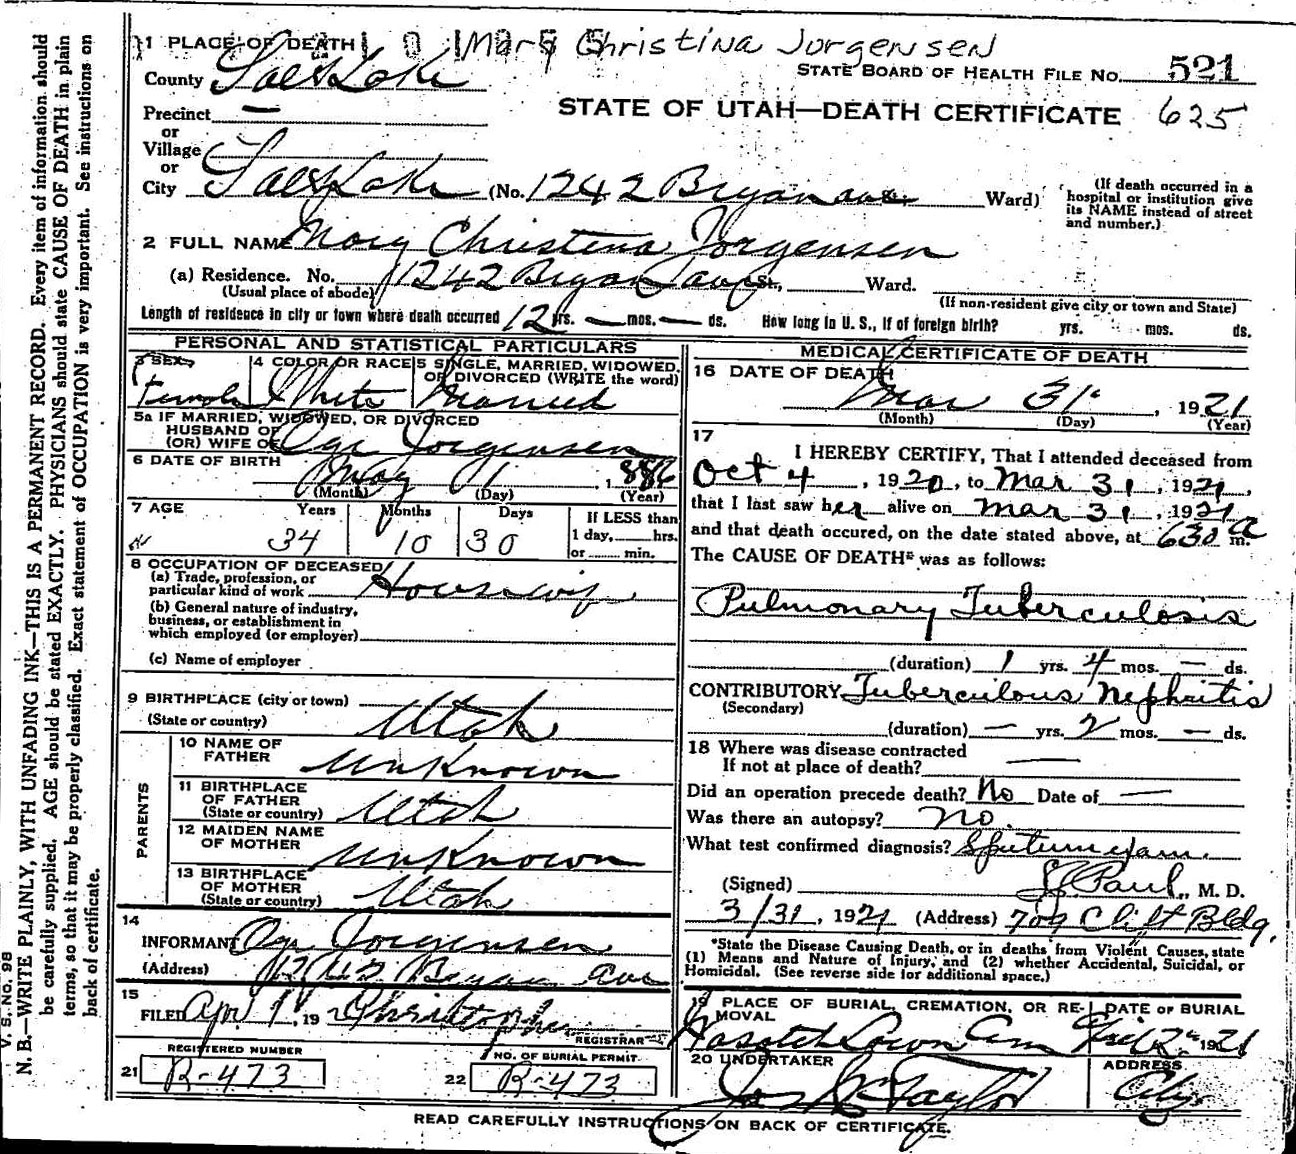 Mary Christina Jorgensen
1 PLACE OF DEATH
STATE BOARD OF HEALTH FILE NO. 521
County Salt Lake
STATE OF UTAH—DEATH CERTIFICATE 625
Precinct —
or
Village
or
City Salt Lake (No. 1242 Bryan ave Ward)
(If death occurred in a hospital or institution give its NAME instead of street and number.)
2 FULL NAME Mary Christina Jorgensen
(a) Residence. No. 1242 Bryan ave St., Ward.
(Usual place of abode) (If non-resident give city or town and State)
Length of residence in city or town where death occurred 12 yrs. — mos. — ds. How long in U. S., if of foreign birth? yrs. mos. ds.
PERSONAL AND STATISTICAL PARTICULARS
3 SEX 4 COLOR OR RACE 5 SINGLE, MARRIED, WIDOWED, OR DIVORCED (WRITE the word)
Female White Married
5a IF MARRIED, WIDOWED, OR DIVORCED
HUSBAND OF
(OR) WIFE OF Jorgensen
6 DATE OF BIRTH May 1, 1886
(Month) (Day) (Year)
7 AGE Years Months Days If LESS than
1 day, hrs.
34 10 30 or min.
8 OCCUPATION OF DECEASED
(a) Trade, profession, or
particular kind of work Housewife
(b) General nature of industry,
business, or establishment in
which employed (or employer)
(c) Name of employer
9 BIRTHPLACE (city or town)
(State or country) Utah
PARENTS
10 NAME OF
FATHER Unknown
11 BIRTHPLACE
OF FATHER
(State or country) Utah
12 MAIDEN NAME
OF MOTHER Unknown
13 BIRTHPLACE
OF MOTHER
(State or country) Utah
14
INFORMANT Jorgensen
(Address) Bryan ave
15
FILED Apr 1, 19
REGISTRAR
REGISTERED NUMBER NO. OF BURIAL PERMIT
21 R-473 22 R-473
MEDICAL CERTIFICATE OF DEATH
16 DATE OF DEATH
Mar 31, 1921
(Month) (Day) (Year)
17
I HEREBY CERTIFY, That I attended deceased from
Oct 4, 1920, to Mar 31, 1921,
that I last saw her alive on Mar 31, 1921
and that death occured, on the date stated above, at 630 a m.
The CAUSE OF DEATH* was as follows:
Pulmonary Tuberculosis
(duration) 1 yrs. 4 mos. — ds.
CONTRIBUTORY Tuberculous Nephritis
(Secondary)
(duration) — yrs. 2 mos. — ds.
18 Where was disease contracted
If not at place of death? —
Did an operation precede death? No Date of —
Was there an autopsy? no.
What test confirmed diagnosis? Sputum exam.
(Signed) Paul, M. D.
3/31, 1921 (Address) 709 Clift Bldg.
*State the Disease Causing Death, or in deaths from Violent Causes, state
(1) Means and Nature of Injury, and (2) whether Accidental, Suicidal, or
Homicidal. (See reverse side for additional space.)
19 PLACE OF BURIAL, CREMATION, OR RE-
MOVAL
DATE OF BURIAL
Wasatch Lawn Cem 2 1921
20 UNDERTAKER ADDRESS
Taylor City
READ CAREFULLY INSTRUCTIONS ON BACK OF CERTIFICATE.
V. S. NO. 98
N. B.—WRITE PLAINLY, WITH UNFADING INK—THIS IS A PERMANENT RECORD. Every item of information should
be carefully supplied. AGE should be stated EXACTLY. PHYSICIANS should state CAUSE OF DEATH in plain
terms, so that it may be properly classified. Exact statement of OCCUPATION is very important. See instructions on
back of certificate.